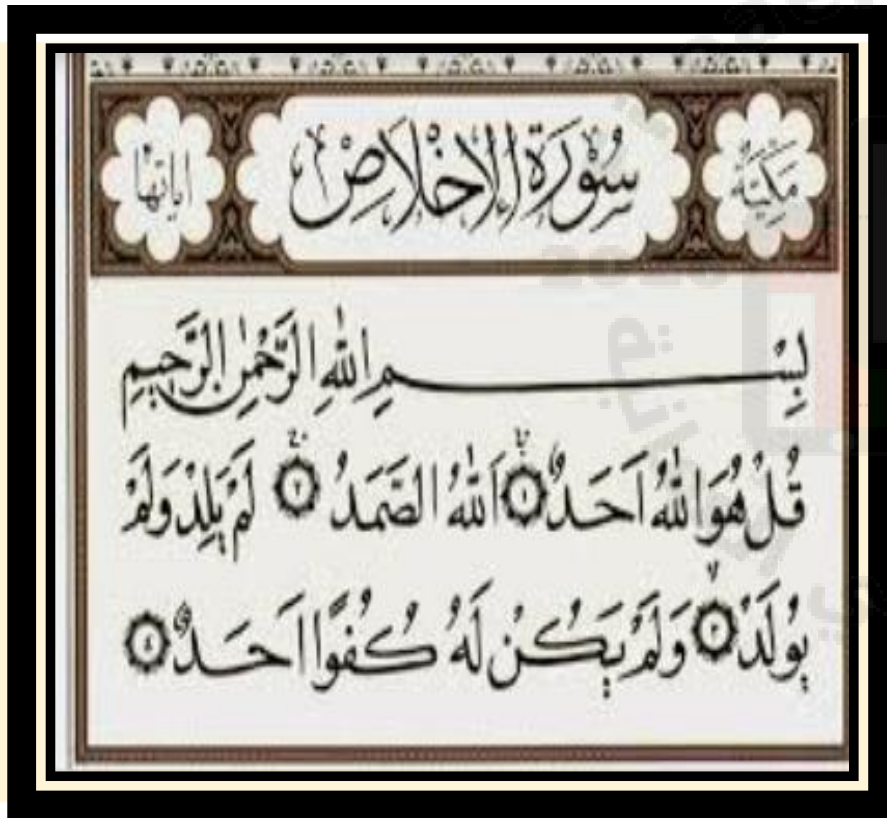 مَكِّيَّةٌ سُوْرَةُ الْاِخْلَاصِ اٰيَاتُهَا
بِسْمِ اللّٰهِ الرَّحْمٰنِ الرَّحِيْمِ
قُلْ هُوَ اللّٰهُ اَحَدٌ ۝١ اَللّٰهُ الصَّمَدُ ۝٢ لَمْ يَلِدْ وَلَمْ
يُوْلَدْ ۝٣ وَلَمْ يَكُنْ لَهُ كُفُوًا اَحَدٌ ۝٤